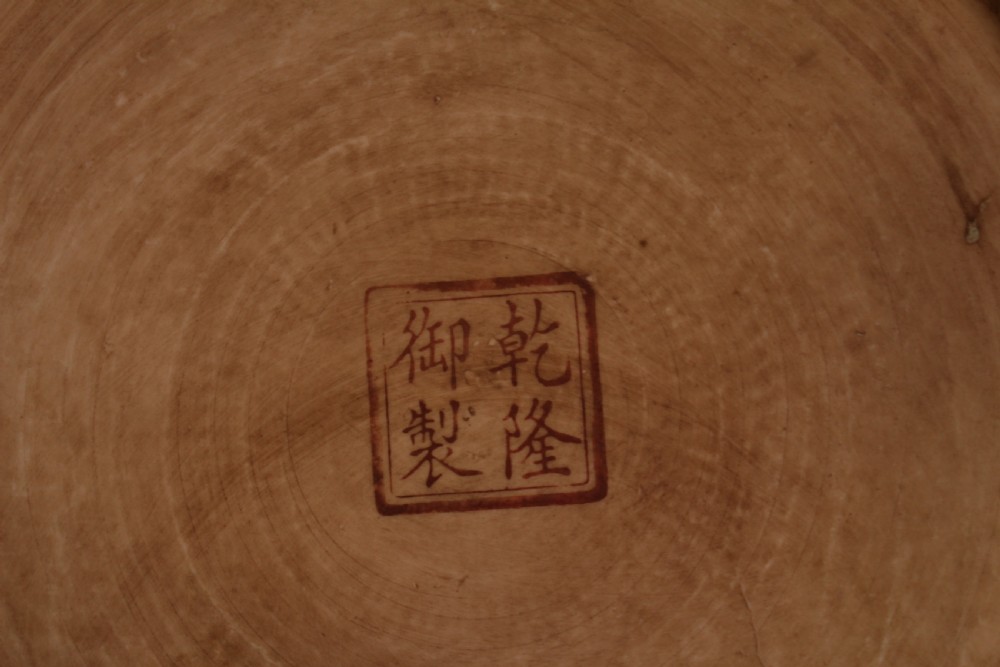 乾隆
御製